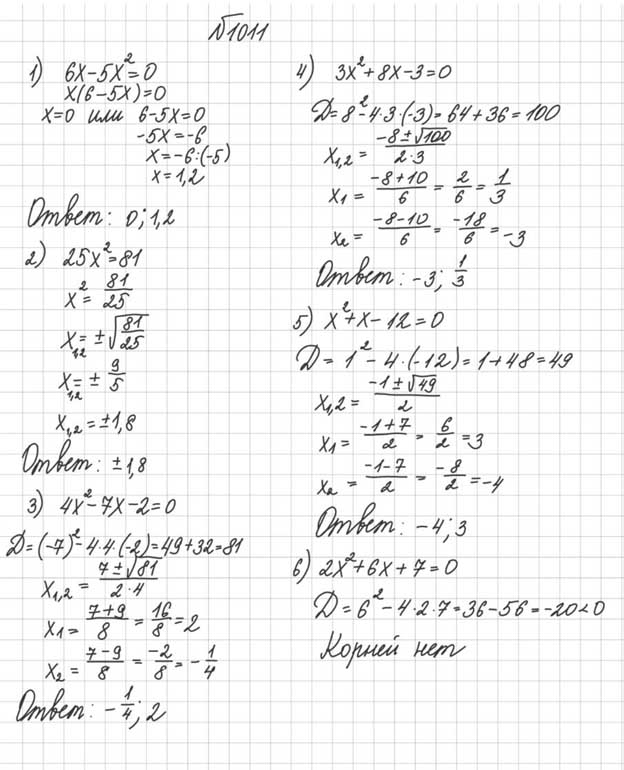 №1011
1) 6x-5x²=0
x(6-5x)=0
x=0 или 6-5x=0
-5x=-6
x=-6:(-5)
x=1,2
Ответ: 0; 1,2
2) 25x²=81
x²=81/25
x1,2=±√81/25
x1,2=±9/5
x1,2=±1,8
Ответ: ±1,8
3) 4x²-7x-2=0
D=(-7)²-4·4·(-2)=49+32=81
x1,2=(7±√81)/(2·4)
x1=(7+9)/8=16/8=2
x2=(7-9)/8=-2/8=-1/4
Ответ: -1/4; 2
4) 3x²+8x-3=0
D=8²-4·3·(-3)=64+36=100
x1,2=(-8±√100)/(2·3)
x1=(-8+10)/6=2/6=1/3
x2=(-8-10)/6=-18/6=-3
Ответ: -3; 1/3
5) x²+x-12=0
D=1²-4·(-12)=1+48=49
x1,2=(-1±√49)/2
x1=(-1+7)/2=6/2=3
x2=(-1-7)/2=-8/2=-4
Ответ: -4; 3
6) 2x²+6x+7=0
D=6²-4·2·7=36-56=-20<0
Корней нет